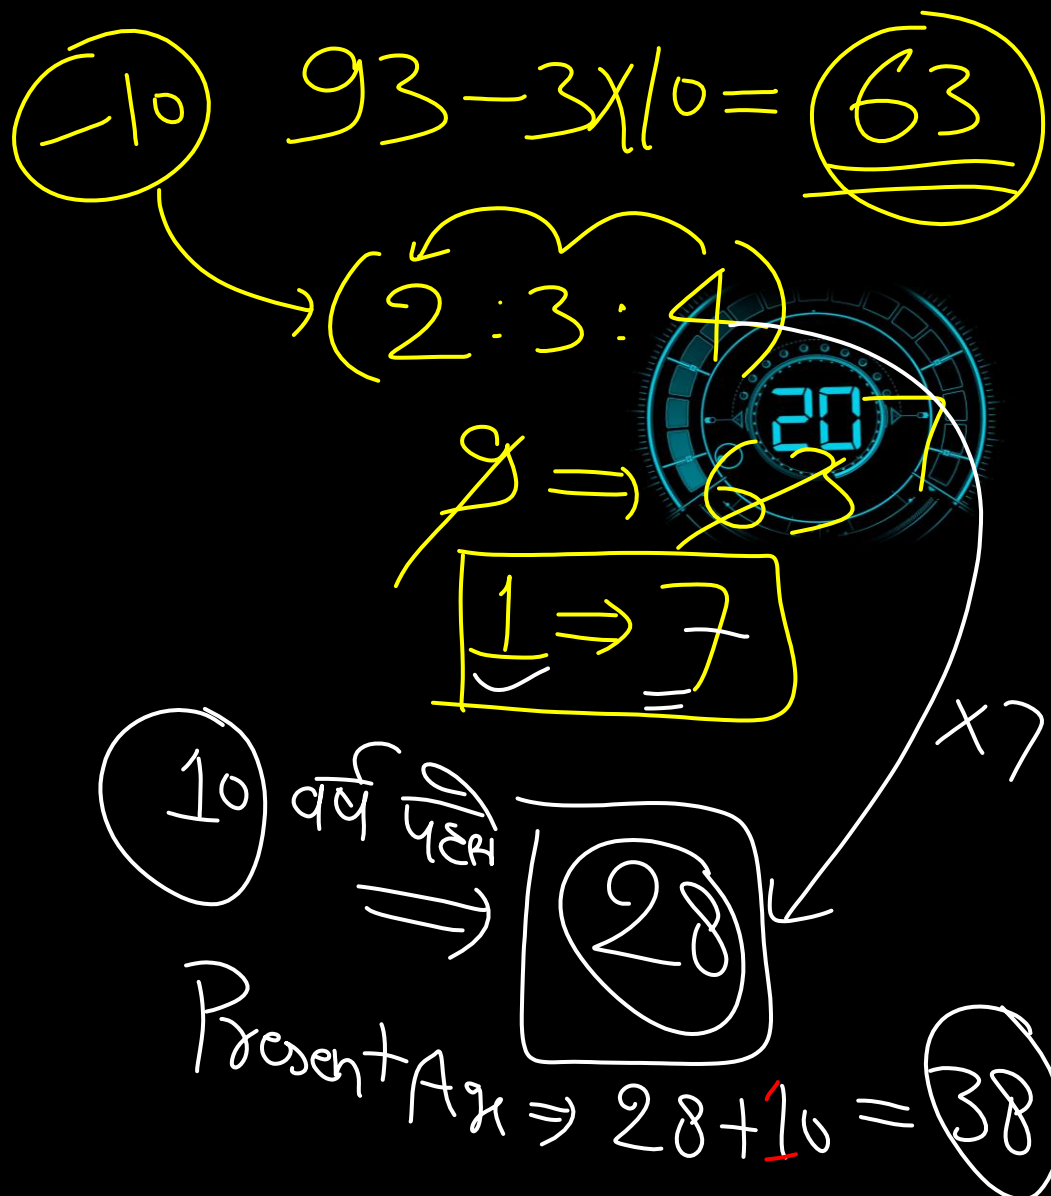 -10 93-3×10= 63
(2:3:4)
20
9 ⇒ 63 7
1 ⇒ 7
×7
10 वर्ष पहले
⇒ 28
Present Age ⇒ 28+10 = 38